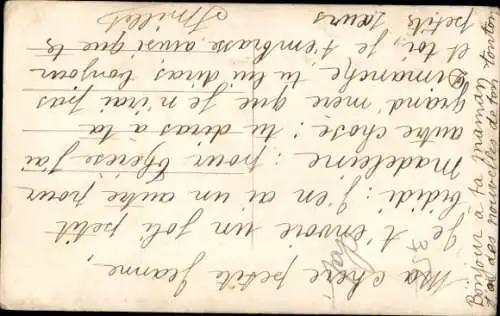 Ma chère petite Jeanne,
Je t'envoie un joli petit
bidi : j'en ai un autre pour
Madeleine : pour Thérèse j'ai
autre chose : tu diras à ta
grand'mère que je n'irai pas
Dimanche, tu lui diras bonjour
et toi, je t'embrasse ainsi que tes
petites sœurs
Bonjour à ta maman
des nouvelles de ton tonton